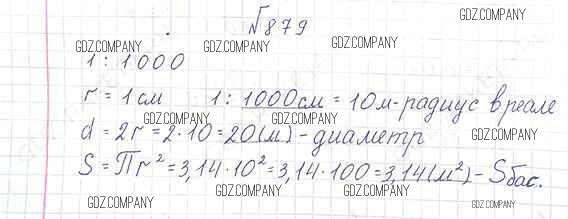 №879
GDZ.COMPANY
GDZ.COMPANY GDZ.COMPANY GDZ.COMPANY
1 : 1000
r = 1 см 1 : 1000см = 10м - радиус в реале
GDZ.COMPANY GDZ.COMPANY GDZ.COMPANY
d = 2r = 2·10 = 20(м) - диаметр
S = Пr² = 3,14·10² = 3,14·100 = 3,14(м²) - Sбас.
GDZ.COMPANY GDZ.COMPANY GDZ.COMPANY
GDZ.COMPANY